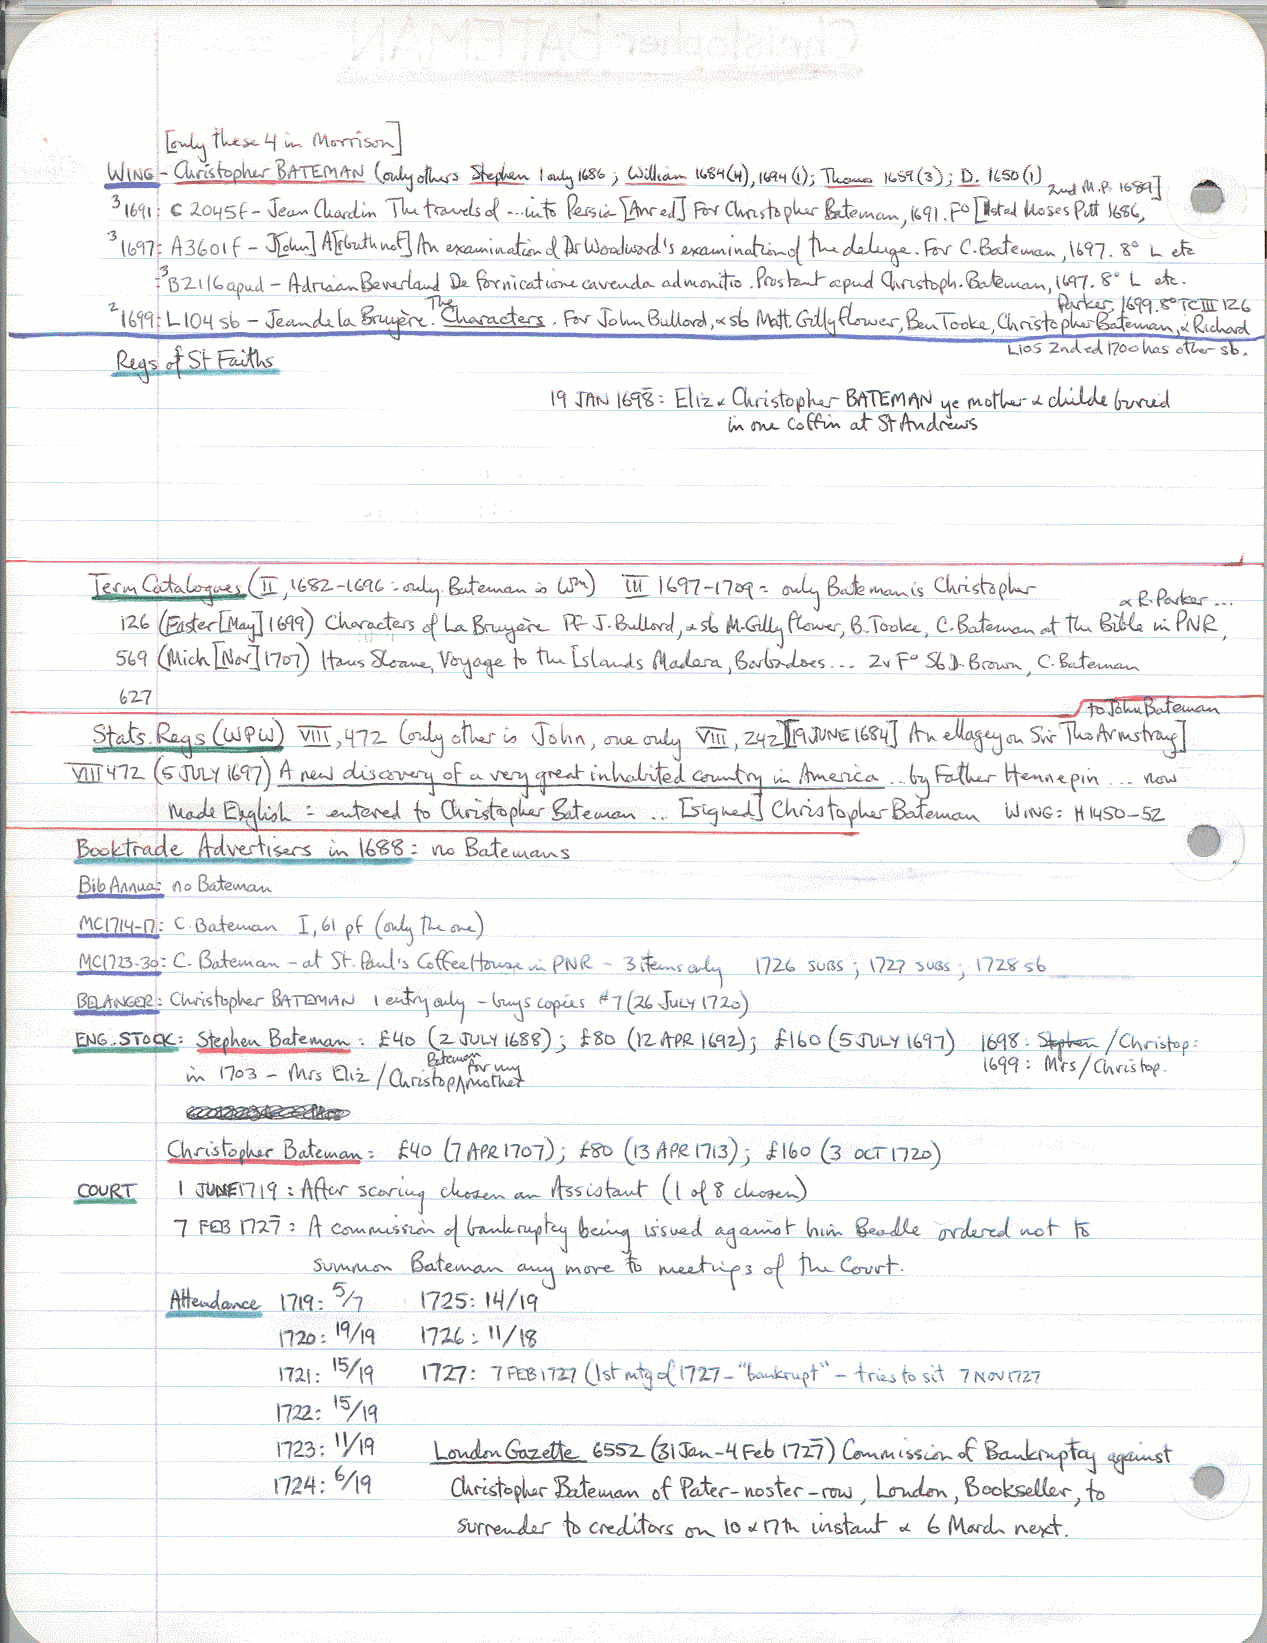 [only these 4 in Morrison]
WING - Christopher BATEMAN (only others Stephen 1 only 1686; William 1684(4), 1694(1); Thomas 1659(3); D. 1650(1)
2nd M.P. 1689]
3 1691: C 2045f - Jean Chardin The travels of ... into Persia [Anr ed] For Christopher Bateman, 1691. Fo [1sted Moses Pitt 1686,
3 1697: A3601f - J[ohn] A[rbuthnot] An examination of Dr Woodward's examination of the deluge. For C. Bateman, 1697. 8° L etc
3 B2116 apud - Adriaan Beverland De fornicatione cavenda admonitio. Prostant apud Christoph. Bateman, 1697. 8° L etc.
Parker, 1699. 8° TC III 126
2 1699: L104 sb - Jean de la Bruyère. The Characters. For John Bullord, & sb Matt. Gillyflower, Ben Tooke, Christopher Bateman, & Richard
L105 2nd ed 1700 has other sb.
Regs of St Faiths
19 JAN 1698: Eliz & Christopher BATEMAN ye mother & childe buried
in one coffin at St Andrews
Term Catalogues (II, 1682-1696: only Bateman is Wm) III 1697-1709 = only Bateman is Christopher
& R. Parker ...
126 (Easter [May] 1699) Characters of La Bruyère PF J. Bullord, & sb M. Gillyflower, B. Tooke, C. Bateman at the Bible in PNR,
569 (Mich [Nov] 1707) Hans Sloane, Voyage to the Islands Madera, Barbadoes ... 2v F° Sb D. Brown, C. Bateman
627
to John Bateman
Stats. Regs (WPW) VIII, 472 (only other is John, one only VIII, 242 [19 JUNE 1684] An ellagey on Sir Tho Armstrang]
VIII 472 (5 JULY 1697) A new discovery of a very great inhabited country in America ... by Father Hennepin ... now
made English = entered to Christopher Bateman ... [signed] Christopher Bateman WING: H1450-52
Booktrade Advertisers in 1688: no Batemans
Bib Annua: no Bateman
MC1714-17: C. Bateman I, 61 pf (only the one)
MC1723-30: C. Bateman - at St. Paul's Coffee House in PNR - 3 items only 1726 SUBS; 1727 SUBS; 1728 sb
BELANGER: Christopher BATEMAN 1 entry only - buys copies #7 (26 JULY 1720)
ENG. STOCK: Stephen Bateman: £40 (2 JULY 1688); £80 (12 APR 1692); £160 (5 JULY 1697) 1698: Stephen / Christop:
1699: Mrs / Christop.
in 1703 - Mrs Eliz / Christop Bateman for my mother
Christopher Bateman: £40 (7 APR 1707); £80 (13 APR 1713); £160 (3 OCT 1720)
COURT 1 JUNE 1719: After scoring chosen an Assistant (1 of 8 chosen)
7 FEB 1727: A commission of bankruptcy being issued against him Beadle ordered not to
summon Bateman any more to meetings of the Court.
Attendance 1719: 5/7 1725: 14/19
1720: 19/19 1726: 11/18
1721: 15/19 1727: 7 FEB 1727 (1st mtg of 1727 - "bankrupt" - tries to sit 7 NOV 1727
1722: 15/19
1723: 11/19 London Gazette 6552 (31 Jan - 4 Feb 1727) Commission of Bankruptcy against
1724: 6/19 Christopher Bateman of Pater-noster-row, London, Bookseller, to
surrender to creditors on 10 & 17th instant & 6 March next.